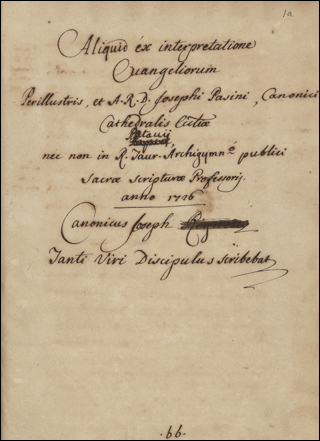 1a
Aliquid ex interpretatione
Evangeliorum
Perillustris, et A. R. D. Josephi Pasini, Canonici
Cathedralis
Patavij
nec non in R. Taur. Archigymn.º publici
Sacræ Scripturæ Professorij
anno 1726
Canonicus Joseph
Tanti Viri Discipulus scribebat
.66.